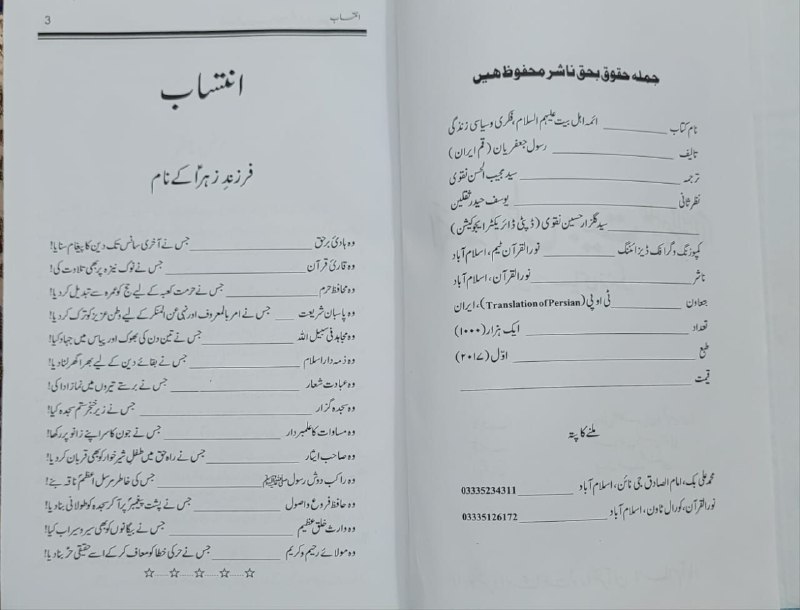 جملہ حقوق بحق ناشر محفوظ ھیں
نام کتاب ________ ائمہ اہل بیت علیہم السلام، فکری و سیاسی زندگی
تالیف ________ رسول جعفریان (قم ایران)
ترجمہ ________ سید مجیب الحسن نقوی
نظر ثانی ________ یوسف حیدر ثقلین
________ سید گلزار حسین نقوی (ڈپٹی ڈائریکٹر ایجوکیشن)
کمپوزنگ و گرافک ڈیزائننگ ________ نور القرآن ٹیم، اسلام آباد
ناشر ________ نور القرآن، اسلام آباد
بتعاون ________ ٹی او پی (Translation of Persian)، ایران
تعداد ________ ایک ہزار (۱۰۰۰)
طبع ________ اوّل (۲۰۱۷)
قیمت ________
ملنے کا پتہ
محمد علی بک، امام الصادق جی نائن، اسلام آباد ________ 03335234311
نور القرآن، کورال ٹاون، اسلام آباد ________ 03335126172
انتساب 3
انتساب
فرزندِ زہراؑ کے نام
وہ ہادیٔ برحق ________ جس نے آخری سانس تک دین کا پیغام سنایا!
وہ قاریٔ قرآن ________ جس نے نوک نیزہ پر بھی تلاوت کی!
وہ محافظ حرم ________ جس نے حرمت کعبہ کے لیے حج کو عمرہ سے تبدیل کر دیا!
وہ پاسبان شریعت ________ جس نے امر بالمعروف اور نہی عن المنکر کے لیے وطن عزیز کو ترک کر دیا!
وہ مجاہد فی سبیل اللہ ________ جس نے تین دن کی بھوک اور پیاس میں جہاد کیا!
وہ ذمہ دار اسلام ________ جس نے بقائے دین کے لیے بھرا گھر لٹا دیا!
وہ عبادت شعار ________ جس نے برستے تیروں میں نماز ادا کی!
وہ سجدہ گزار ________ جس نے زیر خنجر ستم سجدہ کیا!
وہ مساوات کا علمبردار ________ جس نے جون کا سر اپنے زانو پر رکھا!
وہ صاحب ایثار ________ جس نے راہ حق میں طفل شیر خوار کو بھی قربان کر دیا!
وہ راکب دوش رسول ﷺ ________ جس کی خاطر مرسل اعظمؐ ناقہ بنے!
وہ حافظ فروع و اصول ________ جس نے پشت پیغمبرؐ پر آ کر سجدہ کو طولانی بنا دیا!
وہ وارث خلق عظیم ________ جس نے بیگانوں کو بھی سیر و سیراب کیا!
وہ مولائے رحیم و کریم ________ جس نے حر کی خطا کو معاف کر کے اسے حقیقی حرؓ بنا دیا!
☆.....☆.....☆.....☆.....☆